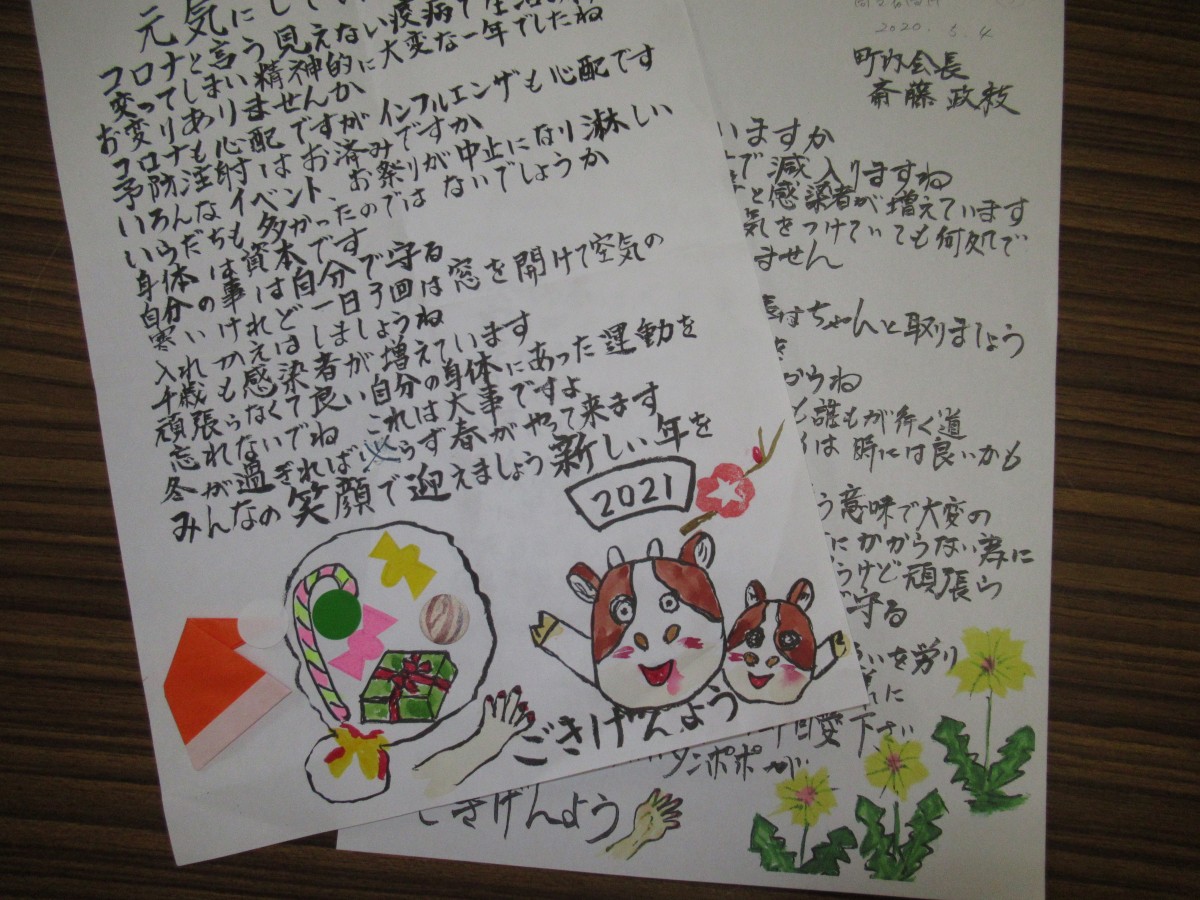 元気にして
コロナと言う見えない疫病で生活
変ってしまい精神的に大変な一年でしたね
お変りありませんか
コロナも心配ですがインフルエンザも心配です
予防注射はお済みですか
いろんなイベント、お祭りが中止になり淋しい
いらだちも多かったのではないでしょうか
身体は資本です
自分の事は自分で守る
寒いけれど一日 回は窓を開けて空気の
入れかえはしましょうね
千歳も感染者が増えています
頑張らなくて良い自分の身体にあった運動を
忘れないでね これは大事ですよ
冬が過ぎれば必らず春がやって来ます
みんなの笑顔で迎えましょう新しい年を
2021
ごきげんよう
2020. 5. 4
町内会長
斎藤 政枝
いますか
で滅入りますね
と感染者が増えています
気をつけていても何処で
ません
ちゃんと取りましょう
からね
誰もが行く道
は時には良いかも
う意味で大変の
にかからない為に
うけど頑張ら
で守る
いを労り
に
愛下さい
タンポポが
ごきげんよう